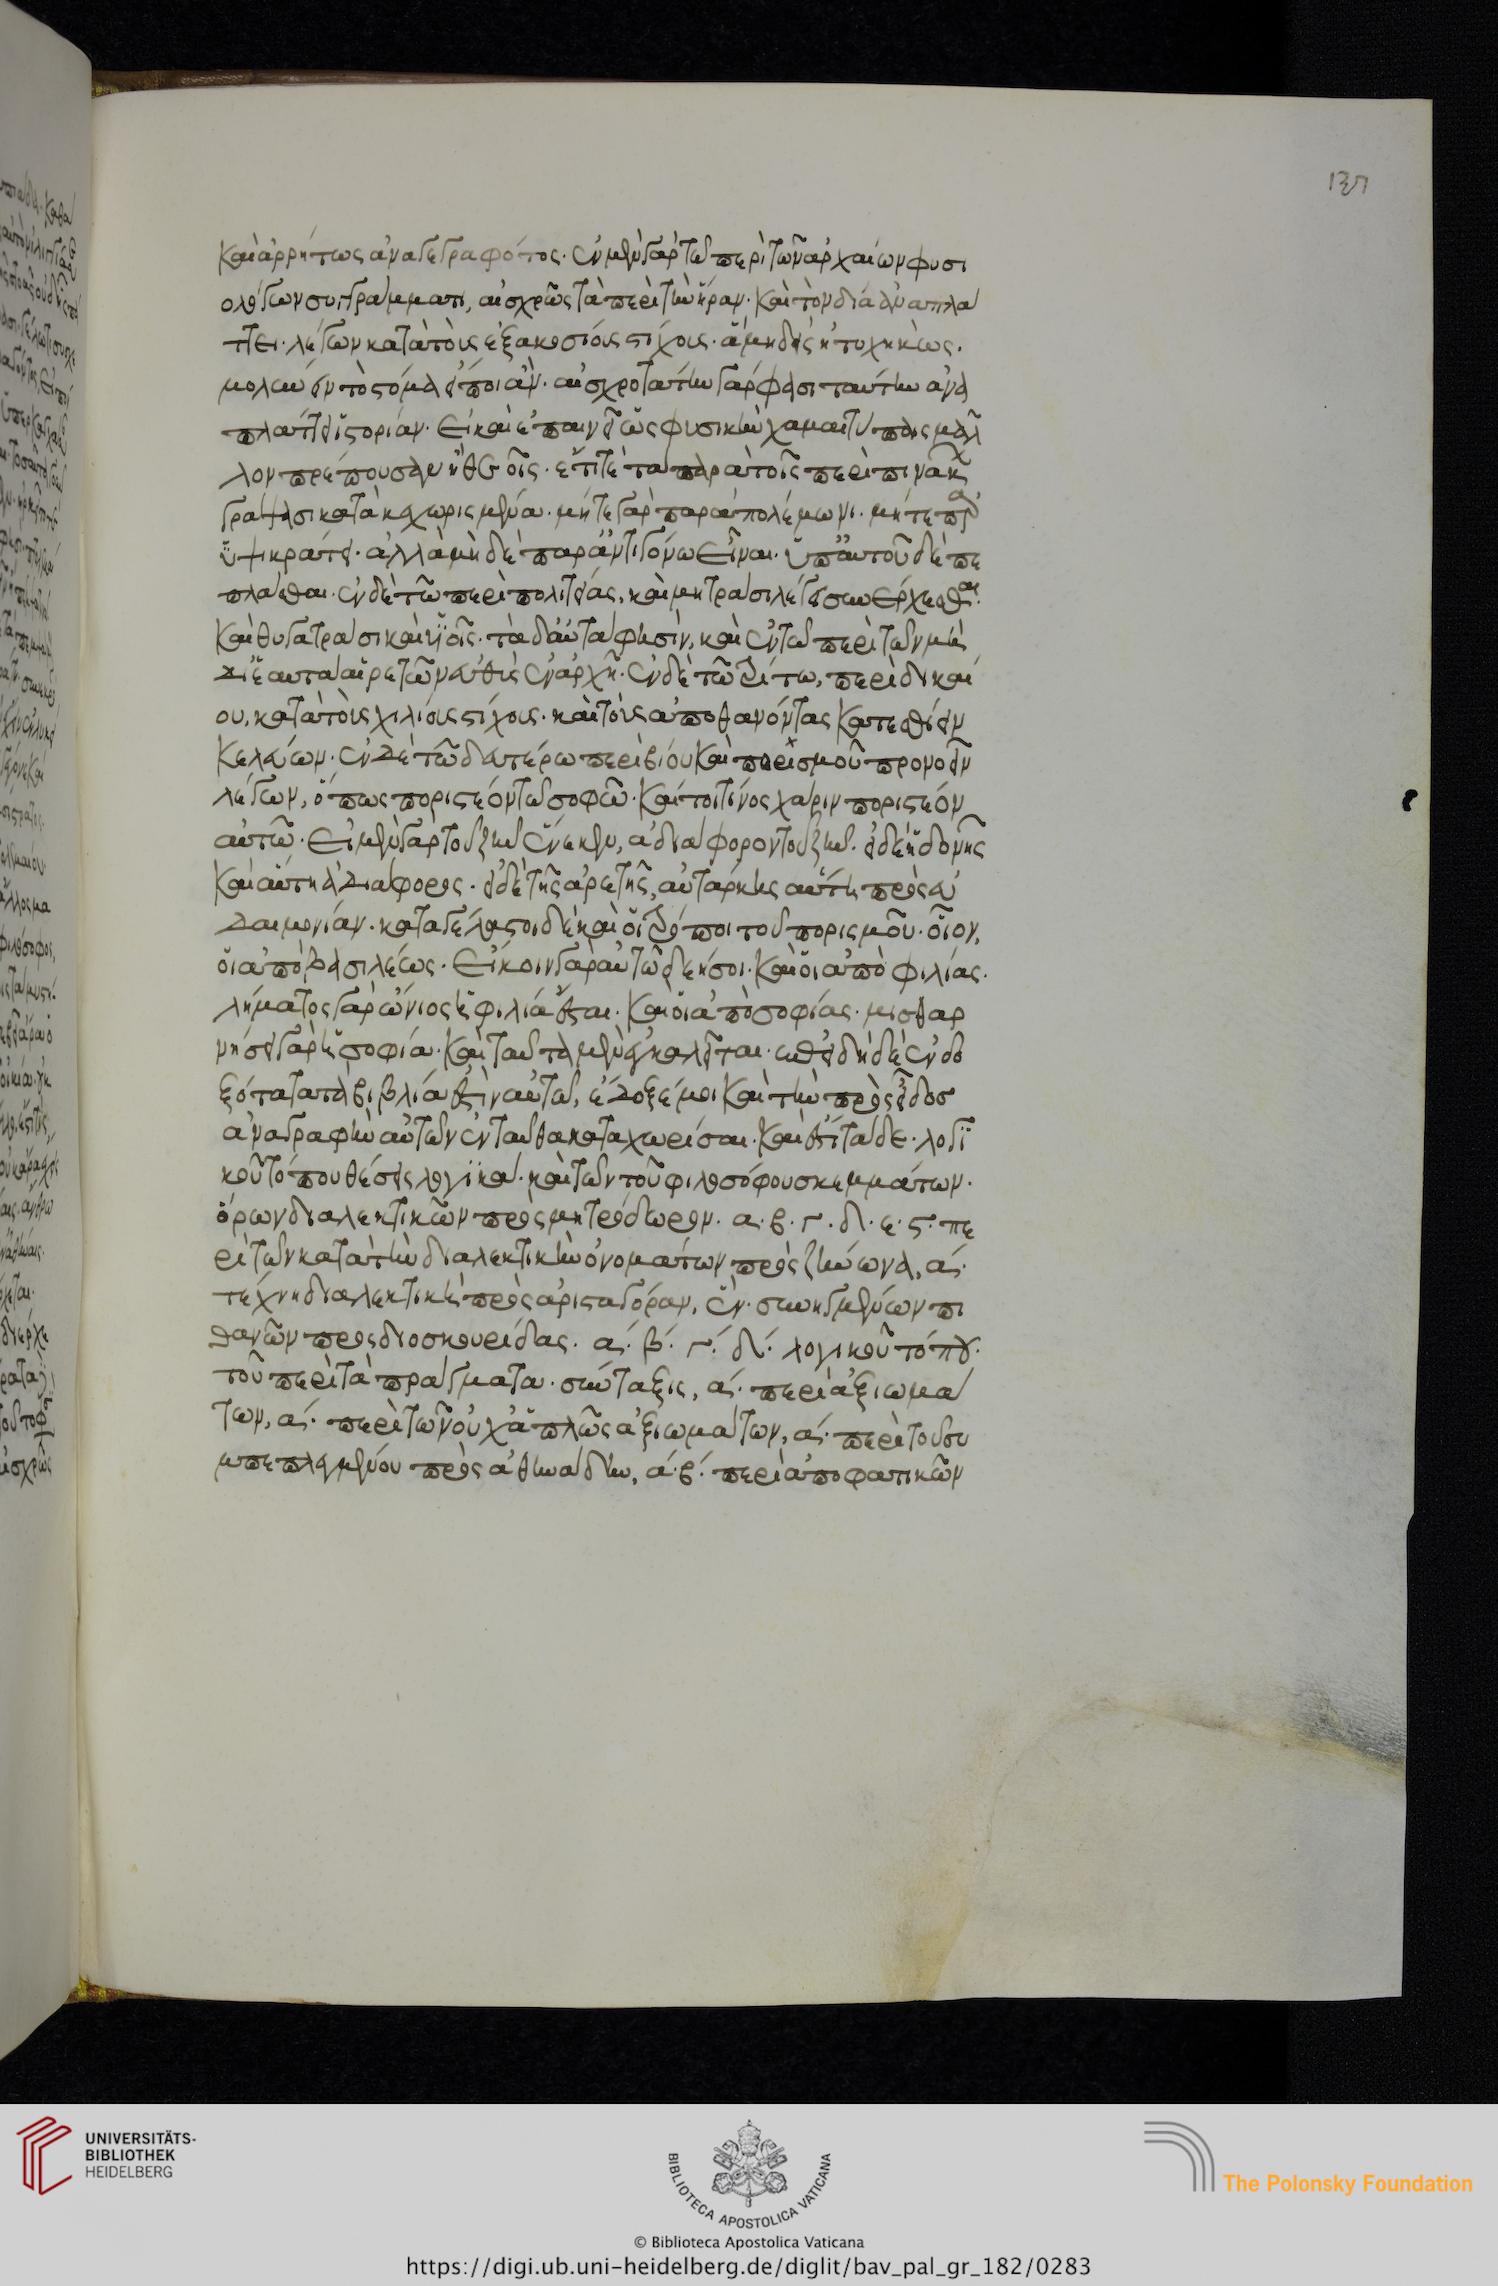 137
καὶ ἀρρήτως ἀναγεγραφότος· ἐν μὲν γὰρ τῶ περὶ τῶν ἀρχαίων φυσι
ολόγων συγγράμματι, αἰσχρῶς τὰ περὶ τὴν ἥραν· καὶ τὸν δία ἀναπλά
τει· λέγων κατὰ τοὺς ἑξακοσίους στίχους· ἃ μηδεὶς ἠτυχηκὼς·
μολύνειν τὸ στόμα εἴποι ἄν· αἰσχροτάτην γάρ φασι ταύτην ἀνα
πλάττει ἱστορίαν· εἰ καὶ ἐπαινεῖ ὡς φυσικὴν χαμαιτύπαις μᾶλ
λον πρέπουσαν ἢ θεοῖς· ἔτι τε τὰ παρὰ τοῖς περὶ πινάκων
γράψασι κατακεχωρισμένα· μήτε γὰρ παρὰ πολέμωνι· μήτε παρ
ὑψικράτει· ἀλλὰ μὴ δὲ παρ' ἀντιγόνω εἶναι· ὑπ' αὐτοῦ δὲ πε
πλάσθαι· ἐν δὲ τῶ περὶ πολιτείας, καὶ μητράσι λέγει συνέρχεσθαι·
καὶ θυγατράσι καὶ υἱοῖς· τὰ δ' αὐτά φησιν, καὶ ἐν τῶ περὶ τῶν μὴ
δι' ἑαυτὰ αἱρετῶν εὐθὺς ἐν ἀρχῆ· ἐν δὲ τῶ τρίτω, περὶ δικαί
ου, κατὰ τοὺς χιλίους στίχους· καὶ τοὺς ἀποθανόντας κατεσθίειν
κελεύων· ἐν δὲ τῶ δευτέρω περὶ βίου καὶ πορισμοῦ προνοεῖν
λέγων, ὅπως ποριστέον τῶ σοφῶ· καίτοι τίνος χάριν ποριστέον
αὐτῶ· εἰ μὲν γὰρ τοῦ ζῆν ἕνεκεν, ἀδιάφορον τὸ ζῆν· εἰ δὲ ἡδονῆς
καὶ αὕτη ἀδιάφορος· εἰ δὲ τῆς ἀρετῆς, αὐτάρκης αὕτη πρὸς εὐ
δαιμονίαν· καταγέλαστοι δὲ καὶ οἱ τρόποι τοῦ πορισμοῦ· οἷον,
οἱ ἀπὸ βασιλέως· εἴκειν γὰρ αὐτῶ δεήσει· καὶ οἱ ἀπὸ φιλίας·
λήματος γὰρ ὤνιος ἡ φιλία ἔσται· καὶ οἱ ἀπὸ σοφίας· μισθαρ
νήσει γὰρ ἡ σοφία· καὶ ταῦτα μὲν ἐγκαλεῖται· ἐπειδὴ δὲ ἐνδο
ξότατα τὰ βιβλία ἐστὶν αὐτῶ, ἔδοξέ μοι καὶ τὴν πρὸς εἶδος
ἀναγραφὴν αὐτῶν ἐνταῦθα καταχωρίσαι· καὶ ἔστι τάδε· λογι
κοῦ τόπου θέσεις λογικαί· καὶ τῶν τοῦ φιλοσόφου σκεμμάτων·
ὅρων διαλεκτικῶν πρὸς μητρόδωρον· α· β· γ· δ· ε· ς· πε
ρὶ τῶν κατὰ τὴν διαλεκτικὴν ὀνομάτων πρὸς ζήνωνα, α·
τέχνη διαλεκτικὴ πρὸς ἀρισταγόραν, ἕν· συνημμένων πι
θανῶν πρὸς διοσκουρίδας· α· β· γ· δ· λογικοῦ τόπου·
τοῦ περὶ τὰ πράγματα· σύνταξις, α· περὶ ἀξιωμά
των, α· περὶ τῶν οὐχ ἁπλῶς ἀξιωμάτων, α· περὶ τοῦ συ
μπεπλεγμένου πρὸς ἀθηνάδην, α· β· περὶ ἀποφατικῶν
UNIVERSITÄTS-
BIBLIOTHEK
HEIDELBERG
BIBLIOTECA APOSTOLICA VATICANA
The Polonsky Foundation
© Biblioteca Apostolica Vaticana
https://digi.ub.uni-heidelberg.de/diglit/bav_pal_gr_182/0283